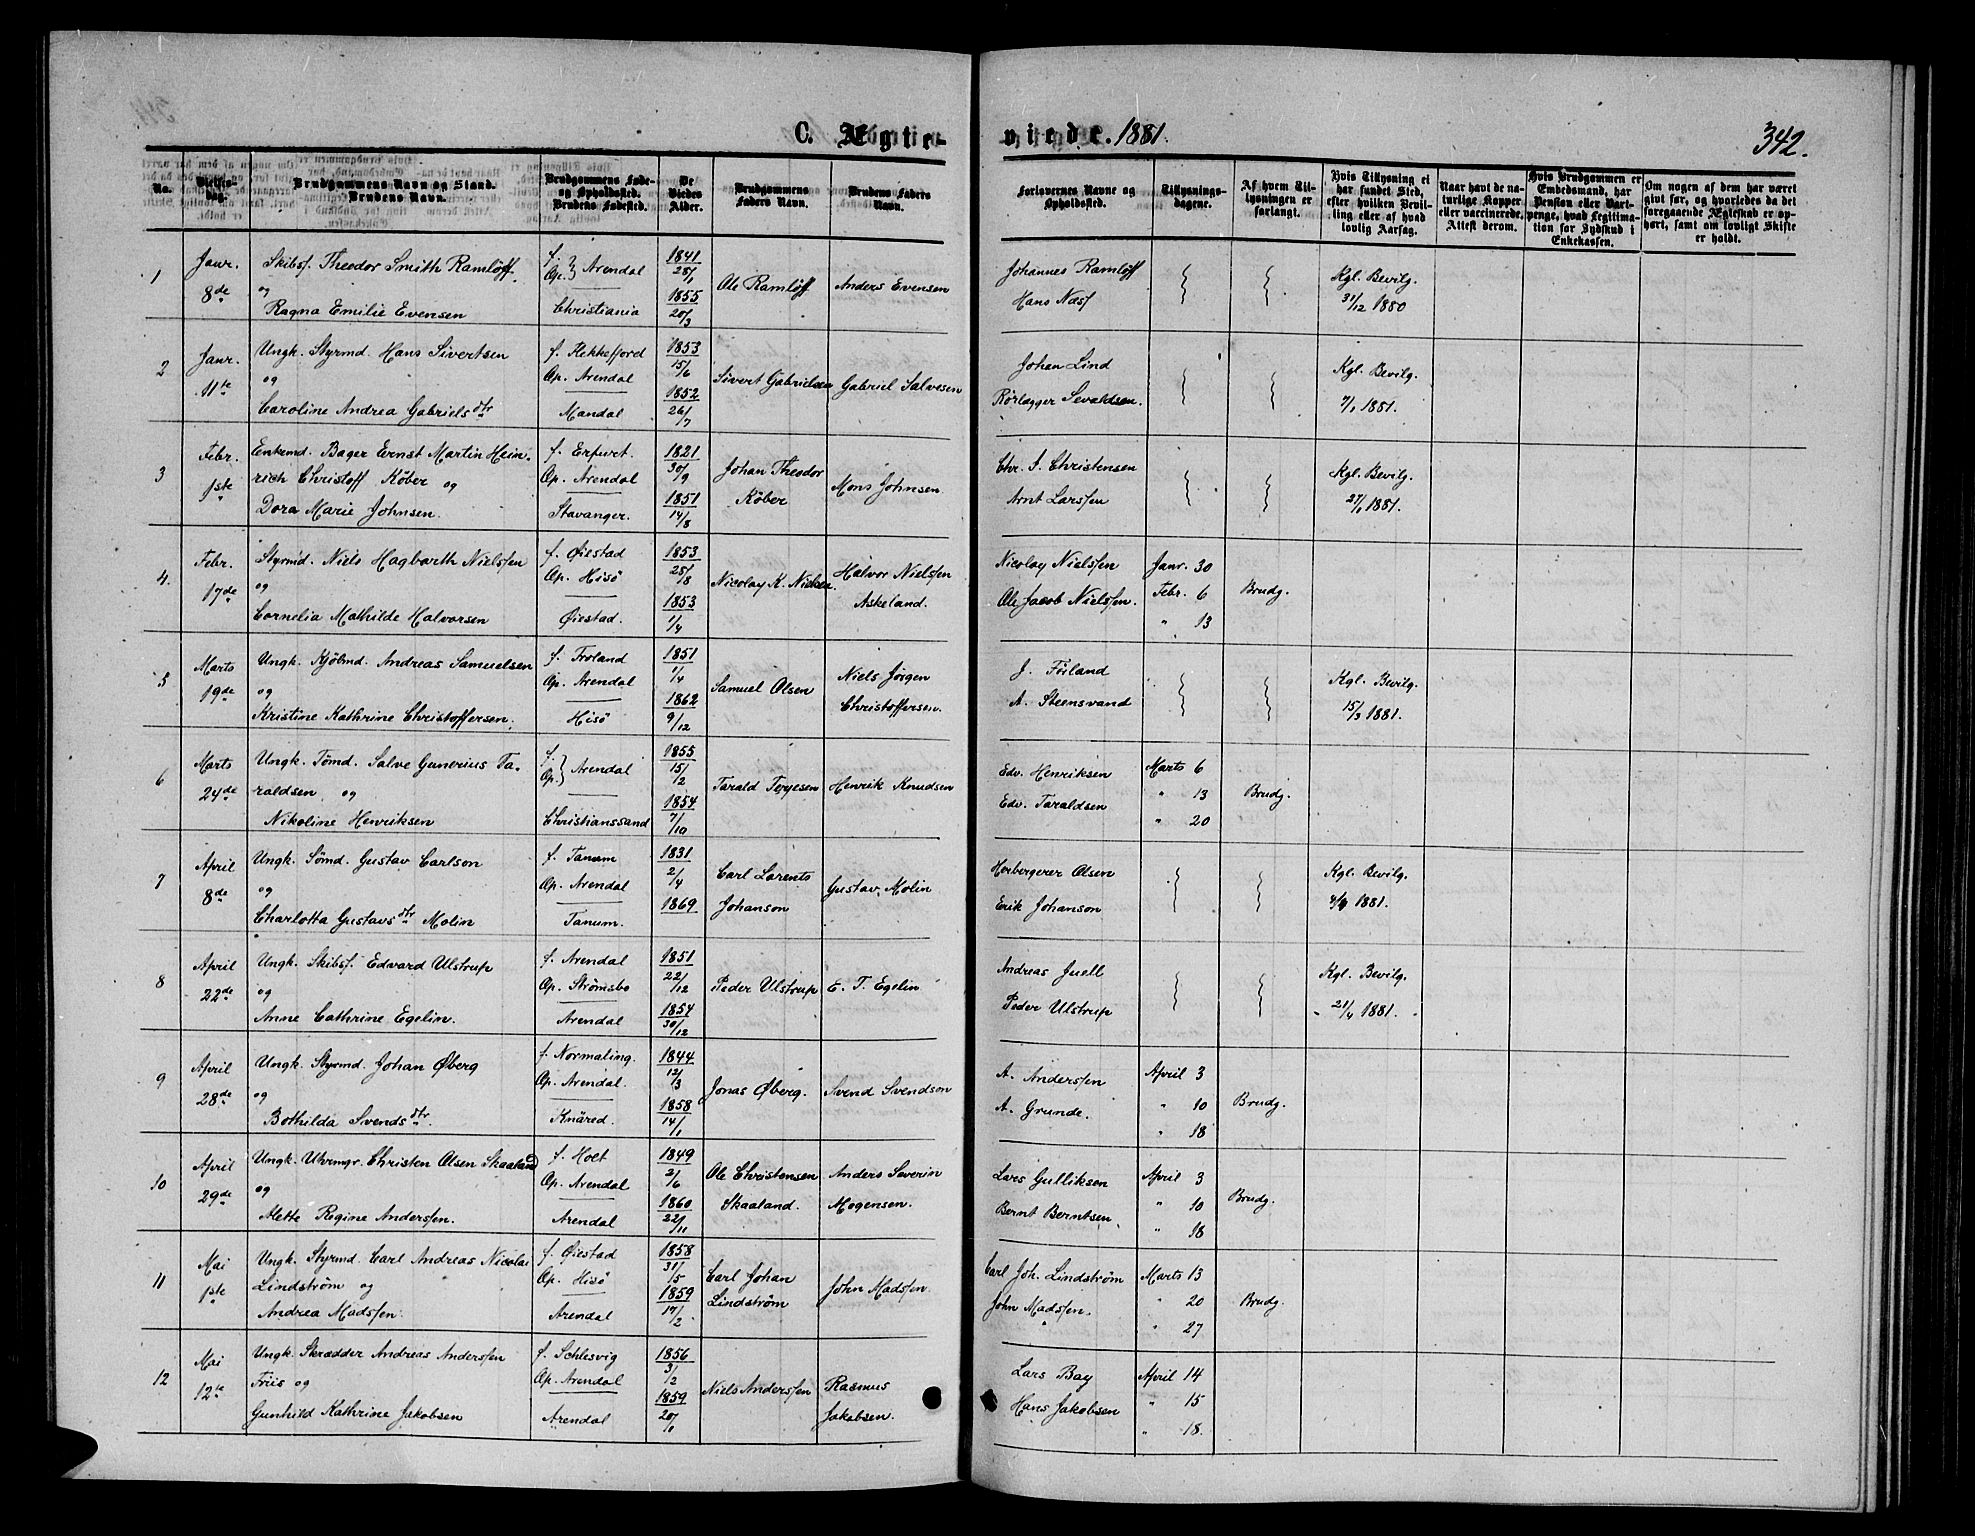 C. Ægte-
viede. 1881.
342.
No.
Vielses-
dag.
Brudgommens Navn og Stand.
Brudens Navn.
Brudgommens Føde-
og Opholdssted.
Brudens Fødested.
De
Viedes
Alder.
Brudgommens
Faders Navn.
Brudens Faders
Navn.
Forlovernes Navne og
Opholdssted.
Tillysnings-
dagene.
Af hvem Til-
lysningen er
forlangt.
Hvis Tillysning ei
har fundet Sted,
efter hvilken Bevil-
ling eller af hvad
lovlig Aarsag.
Naar havt de na-
turlige Kopper
eller vaccinerede.
Attest derom.
Hvis Brudgommen er
Embedsmand, har
Pension eller Vart-
penge, hvad Legitima-
tion for Indskud i
Enkekassen.
Om nogen af dem har været
gift før, og hvorledes da det
foregaaende Ægteskab er op-
hørt, samt om lovligt Skifte
er holdt.
1
Janr.
8de
Skibsf. Theodor Smith Ramlöff.
og
Ragna Emilie Evensen
f. } Arendal
Op.
Christiania
1841
28/1
1855
20/3
Ole Ramlöff
Anders Evensen
Johannes Ramlöff
Hans Næss
Kgl. Bevilg.
31/12 1880
2
Janr.
11te
Ungk. Styrmd. Hans Sivertsen
og
Caroline Andrea Gabrielsdtr
f. Flekkefjord
Op. Arendal
Mandal
1853
15/6
1852
26/7
Sivert Gabrielsen
Gabriel Salvesen
Johan Lind
Rørlægger Sevaldsen.
Kgl. Bevilg.
7/1 1881.
3
Febr.
1ste
Enkemd. Bager Ernst Martin Hein-
rich Christoff Köber og
Dora Marie Johnsen.
f. Erfurt.
Op. Arendal
Stavanger.
1821
30/9
1851
14/8
Johan Theodor
Köber
Mons Johnsen
Chr. I. Christensen
Arnt Larssen
Kgl. Bevilg.
27/1 1881.
4.
Febr.
17de
Styrmd. Niels Hagbarth Nielssen
og
Cornelia Mathilde Halvorsen
f. Øiestad
Op. Hisö
Øiestad.
1853
28/8
1853
1/4
Nicolay K. Nielsen.
Halvor Nielssen
Askeland.
Nicolay Nielssen
Ole Jacob Nielssen.
Janr. 30
Febr. 6
" 13
Brudg.
5
Marts
19de
Ungk. Kjölmd. Andreas Samuelsen
og
Kristine Kathrine Christoffersen.
f. Froland
Op. Arendal
Hisö
1851
1/4
1862
9/12
Samuel Olsen
Niels Jörgen
Christoffersen.
J.Föiland
A. Steensvand
Kgl. Bevilg.
15/3 1881.
6
Marts
24de
Ungk. Tömd. Salve Gunerius Ta-
raldsen og
Nikoline Henriksen
f. } Arendal
Op.
Christianssand
1855
15/2
1854
7/10
Tarald Terjesen
Henrik Knudsen
Edv. Henriksen
Edv. Taraldsen
Marts 6
" 13
" 20
Brudg.
7
April
8de
Ungk. Sömd. Gustav Carlson
og
Charlotta Gustavsdtr Molin
f. Tanum
Op. Arendal
Tanum.
1831
2/4
1869
Carl Larents
Johanson
Gustav Molin
Herbergerer Olsen
Erik Johanson
Kgl. Bevilg.
1881.
8
April
22de
Ungk. Skibsf. Edvard Ulstrup
og
Anne Cathrine Egelin.
f. Arendal
Op. Strömsbo
Arendal
1851
22/12
1854
30/12
Peder Ulstrup
E. T. Egelin
Andreas Juell
Peder Ulstrup
Kgl. Bevilg.
21/4 1881.
9
April
28de
Ungk. Styrmd. Johan Øberg
og
Bothilda Svendsdtr.
f. Normaling.
Op. Arendal.
Knäred.
1844
12/3
1858
14/1
Jonas Øberg.
Svend Svendson
A. Anderssen
A. Grunde.
April 3
" 10
" 18
Brudg.
10
April
29de
Ungk. Uhrmgr. Christen Olsen Skaaland
og
Alette Regine Anderssen.
f. Holt
Op. Arendal
Arendal
1849
2/6
1860
22/11
Ole Christensen
Skaaland.
Anders Severin
Mogensen.
Lars Gulliksen
Bernt Berntsen
April 3
" 10
" 18
Brudg.
11
Mai
1ste
Ungk. Styrmd. Carl Andreas Nicolai
Lindström og
Andrea Madssen.
f. Øiestad
Op. Hisö
Arendal
1858
31/5
1859
17/2
Carl Johan
Lindström
John Madssen
Carl Joh. Lindström
John Madssen.
Marts 13
" 20
" 27
Brudg.
12
Mai
12te
Ungk. Skrædder Andreas Anderssen
Friis og
Gunhild Kathrine Jakobsen
f. Schlesvig
Op. Arendal
Arendal
1856
3/2
1859
20/1
Niels Anderssen
Rasmus
Jakobsen.
Lars Bay
Hans Jakobsen
April 14
" 15
" 18.